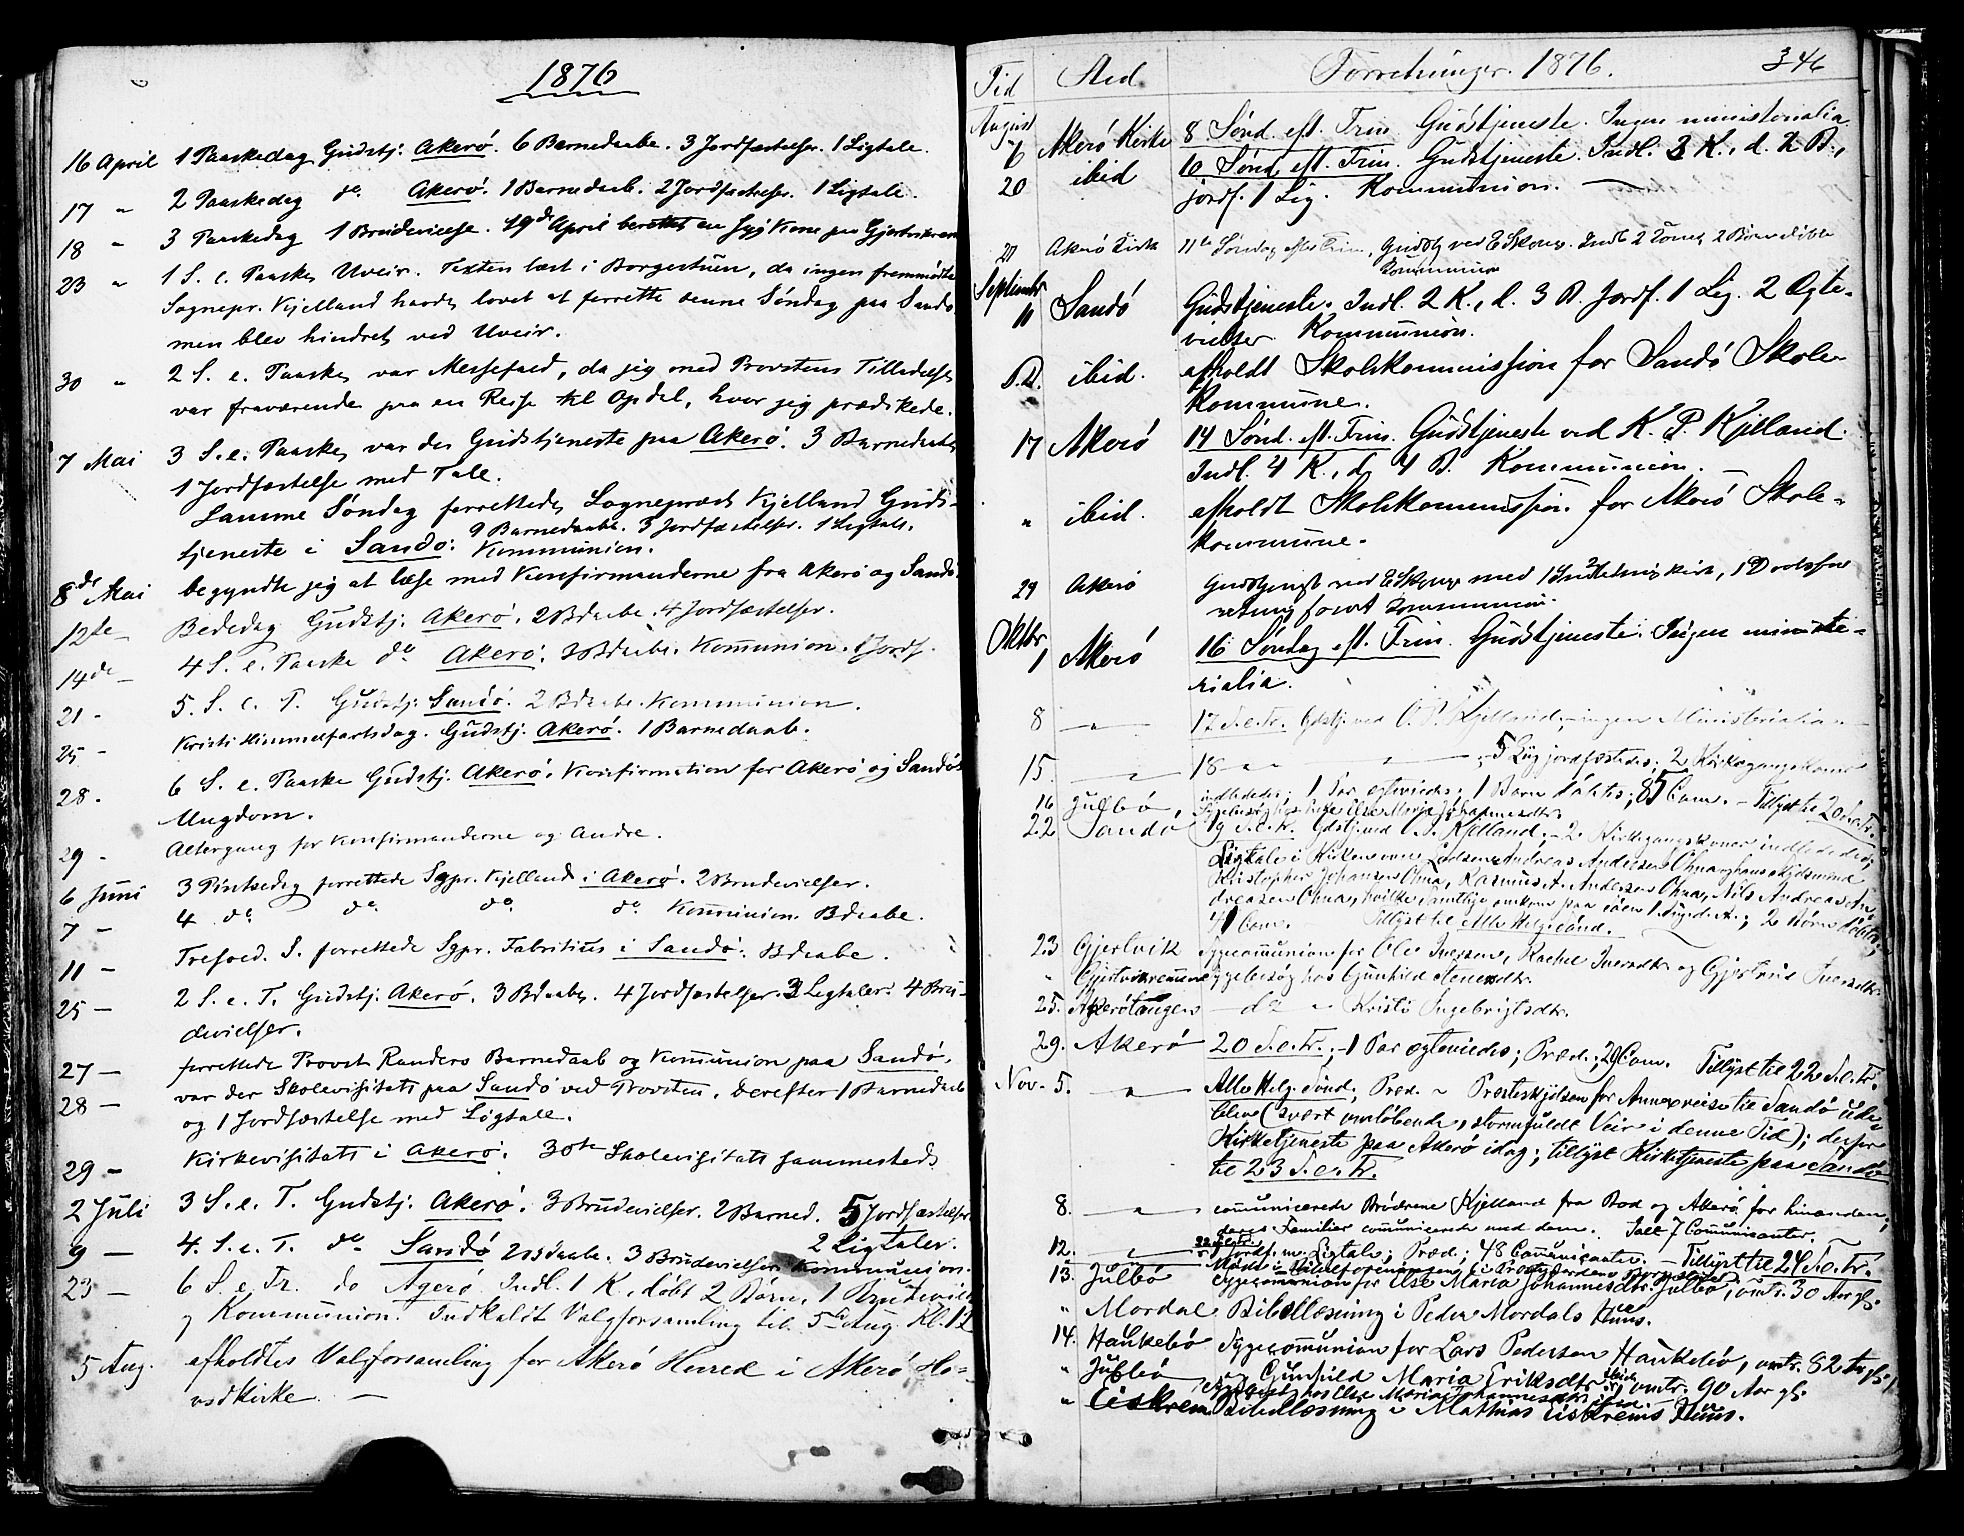 1876
16 April 1 Paaskedag Gudstj. Akerö. 6 Barnedaabe. 3 Jordfæstelser. 1 Ligtale.
17 " 2 Paaskedag do Akerö. 1 Barnedaab. 2 Jordfæstelser. 1 Ligtale.
18 " 3 Paaskedag 1 Brudevielse. 19de April berettet en syg Kone paa
23 " 1 S. e. Paaske Uveir. Texten læst i Borgestuen, da ingen fremmødte
Sognepr. Kjelland havde lovet at forrette denne Søndag paa Sandö
men blev hindret ved Uveir.
30 " 2 S. e. Paaske var Messefald, da jeg med Provstens Tilladelse
var fraværende paa en Reise til Opdal, hvor jeg prædikede.
7 Mai 3 S. e. Paaske var der Gudstjeneste paa Akerö. 3 Barnedaabe
1 Jordfæstelse med Tale.
Samme Søndag forrettede Sognepræst Kjelland Guds-
tjeneste i Sandö. 9 Barnedaabe. 3 Jordfæstelser. 1 Ligtale.
Kommunion.
8de Mai begyndte jeg at læse med Konfirmanderne fra Akerö og Sandö.
12te — Bededag Gudstj. Akerö. 2 Bdaabe. 4 Jordfæstelser.
14de — 4 S. e. Paaske do Akerö. 3 Bdaabe. Kommunion. 1 Jordf.
21 - 5. S. e. P. Gudstj. Sandö. 2 Bdaabe. Kommunion.
25 - Kristi Himmelfartsdag. Gudstj. Akerö. 1 Barnedaab.
28. 6 S. e. Paaske Gudstj. Akerö. Konfirmation for Akerö og Sandös
Ungdom.
29 - Altergang for Konfirmanderne og Andre.
6 Juni 3 Pintsedag forrettede Sgpr. Kjelland i Akerö. 2 Brudevielser.
7 — 4 do do do do Kommunion. Bdaabe.
11 — Trefold. S. forrettede Sgpr. Fabritius i Sandö. Bdaabe.
25 — 2 S. e. T. Gudstj. Akerö. 3 Bdaabe. 4 Jordfæstelser. 3 Ligtaler. 4 Bru-
devielser.
27 — forrettede Provst Randers Barnedaab og Kommunion paa Sandö.
28 — var der Skolevisitats paa Sandö ved Provsten, derefter 1 Barnedaab
og 1 Jordfæstelse med Ligtale.
29 — Kirkevisitats i Akerö. 30te Skolevisitats sammesteds
2 Juli 3 S. e. T. Gudstj. Akerö. 3 Brudevielser. 2 Barned. 5 Jordfæstelser
2 Ligtaler.
9 — 4. S. e. T. do Sandö 2 Bdaabe. 3 Brudevielser. Kommunion.
23 — 6 S. e Tr. do Agerö. Indl. 1 K., döbt 2 Børn, 1 Brudeviels
og Kommunion. Indkaldt Valgforsamling til 5te Aug. Kl. 12
5 Aug. afholdtes Valgforsamling for Akerö Herred i Akerö Ho-
vedkirke. —
Tid Sted Forretninger. 1876. 346
August
6 Akerö Kirke 8 Sønd. eft. Trin. Gudstjeneste. Ingen ministerialia.
20 ibid 10 Sønd. eft. Trin. Gudstjeneste. Indl. 3 K., d. 2 B.,
jordf. 1 Lig. Kommunion. —
27 Akerö Kirke 11te Søndag efter Trin. Gudstj ved Indl 2 Koner, 2 Börn döbte
Kommunion
September
10 Sandö Gudstjeneste. Indl. 2 K., d. 3 B. Jordf. 1 Lig. 2 Ægte-
vielser. Kommunion.
S.D. ibid. afholdt Skolekommission for Sandö Skole-
kommune.
17 Akerö 14 Sønd. eft. Trin. Gudstjeneste ved K. P. Kjelland.
Indl. 4 K., d. 4 B. Kommunion. —
" ibid. afholdt Skolekommission for Akerö Skole-
kommune.
29 Akerö Gudstjenst ved med 1
Kommunion.
Oktbr.
1 Akerö 16 Søndag eft. Trin. Gudstjeneste. Ingen ministe-
rialia.
8 — " — 17 S.e.Tr. Gdstj. ved Kjelland; ingen Ministerialia —
15. — " — 18 — " — ; 5 Liig jordfæstedes; 2 Kirkegangskoner
indlededes; 1 Par ægteviedes; 1 Barn döbtes; 85 Com. — Tillyst til 20 S.e.Tr.
16 Julbö, Sygebesög hos Else Maria Johannesdtr.
22 Sandö 19 S.e.Tr. Gdstj. ved Kjelland; 2 Kirkegangskoner indlededes;
Ligtale i Kirken over Andreas Andersen
Kristopher Johansen Ohna, Rasmus A. Andersen Ohna, Nils Andreas An-
dreasen Ohna, hvilke samtlige omkom paa Söen; 2 Börn döbte;
41 Com. — Tillyst til Alle Helg. Sönd.
23 Gjerlvik Sygecommunion for Ole Iversen, Rachel Iversdtr og Gjertrud Iversdtr.
" Sygebesög hos Gunhild
25. Akerötangen — do — Kristi Ingebrigtsdtr.
29. Akerö 20 S.e.Tr.; 1 Par ægteviedes; Præd.; 29 Com. Tillyst til 22 S.e.Tr.
Nov. 5. — " — Alle Helg. Sönd. Præd. — Præsteskydsen for Annexreise til Sandö ude-
bleve (svært omløbende, stormfuldt Veir i denne Tid); derfor
Kirketjeneste paa Akerö idag; tillyst Kirketjeneste paa Sandö
til 23 S.e.Tr.
8. — " — communicerede Brödrene Kjelland fra Bod og Akerö for hinanden,
deres Familier communicerede med dem. Ialt 7 Communicanter.
12. — " — 22 S.e.Tr. 1 Jordf. m. Ligtale; Præd.; 48 Communicanter. — Tillyst til 24 S.e.Tr.
13. Julbö Sygecommunion for Else Maria Johannesdtr. Julbö, omtr. 30 Aar gl.
" Mordal Bibellæsning i Peder Mordals Huus.
14. Haukebö Sygecommunion for Lars Pedersen Haukebö, omtr. 82 Aar gl.
" Julbö Gunhild Maria Eriksdtr. ibid, omtr. 90 Aar gl.
Sygebesög hos Else Maria Johannesdtr. ibid.
" Eiskrem Bibellæsning i Mathias Eiskrems Huus.